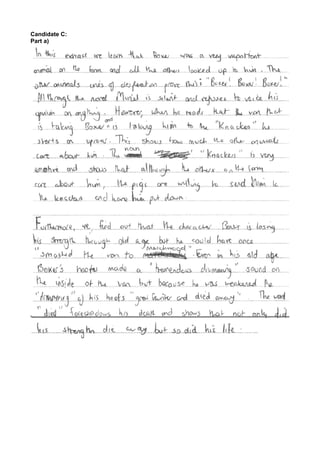 Candidate C:
Part a)
In this extract we learn that Boxer was a very important
animal on the farm and all the others looked up to him. The
other animals cries of desperation prove this "Boxer! Boxer! Boxer!"
All through the novel Muriel is silent and refuses to voice his
opinion on anything. However, when he reads that the van that
is taking Boxer and is taking him to the "Knackers" he
starts an uproar. This shows how much the other animals
care about him. The noun "Knackers" is very
emotive and shows that although the others on the farm
care about him, the pigs are willing to send him to
the knackers and have him put down.
Furthermore, we find out that the character Boxer is losing
his strength through old age but he could have once
"smashed the van to matchwood". Even in his old age
Boxer's hoofs made a "tremendous drumming" sound on
the inside of the van but because he was weakened the
"drumming" of his hoofs "grew fainter and died away". The word
"died" foreshadows his death and shows that not only did
his strength die away but so did his life.